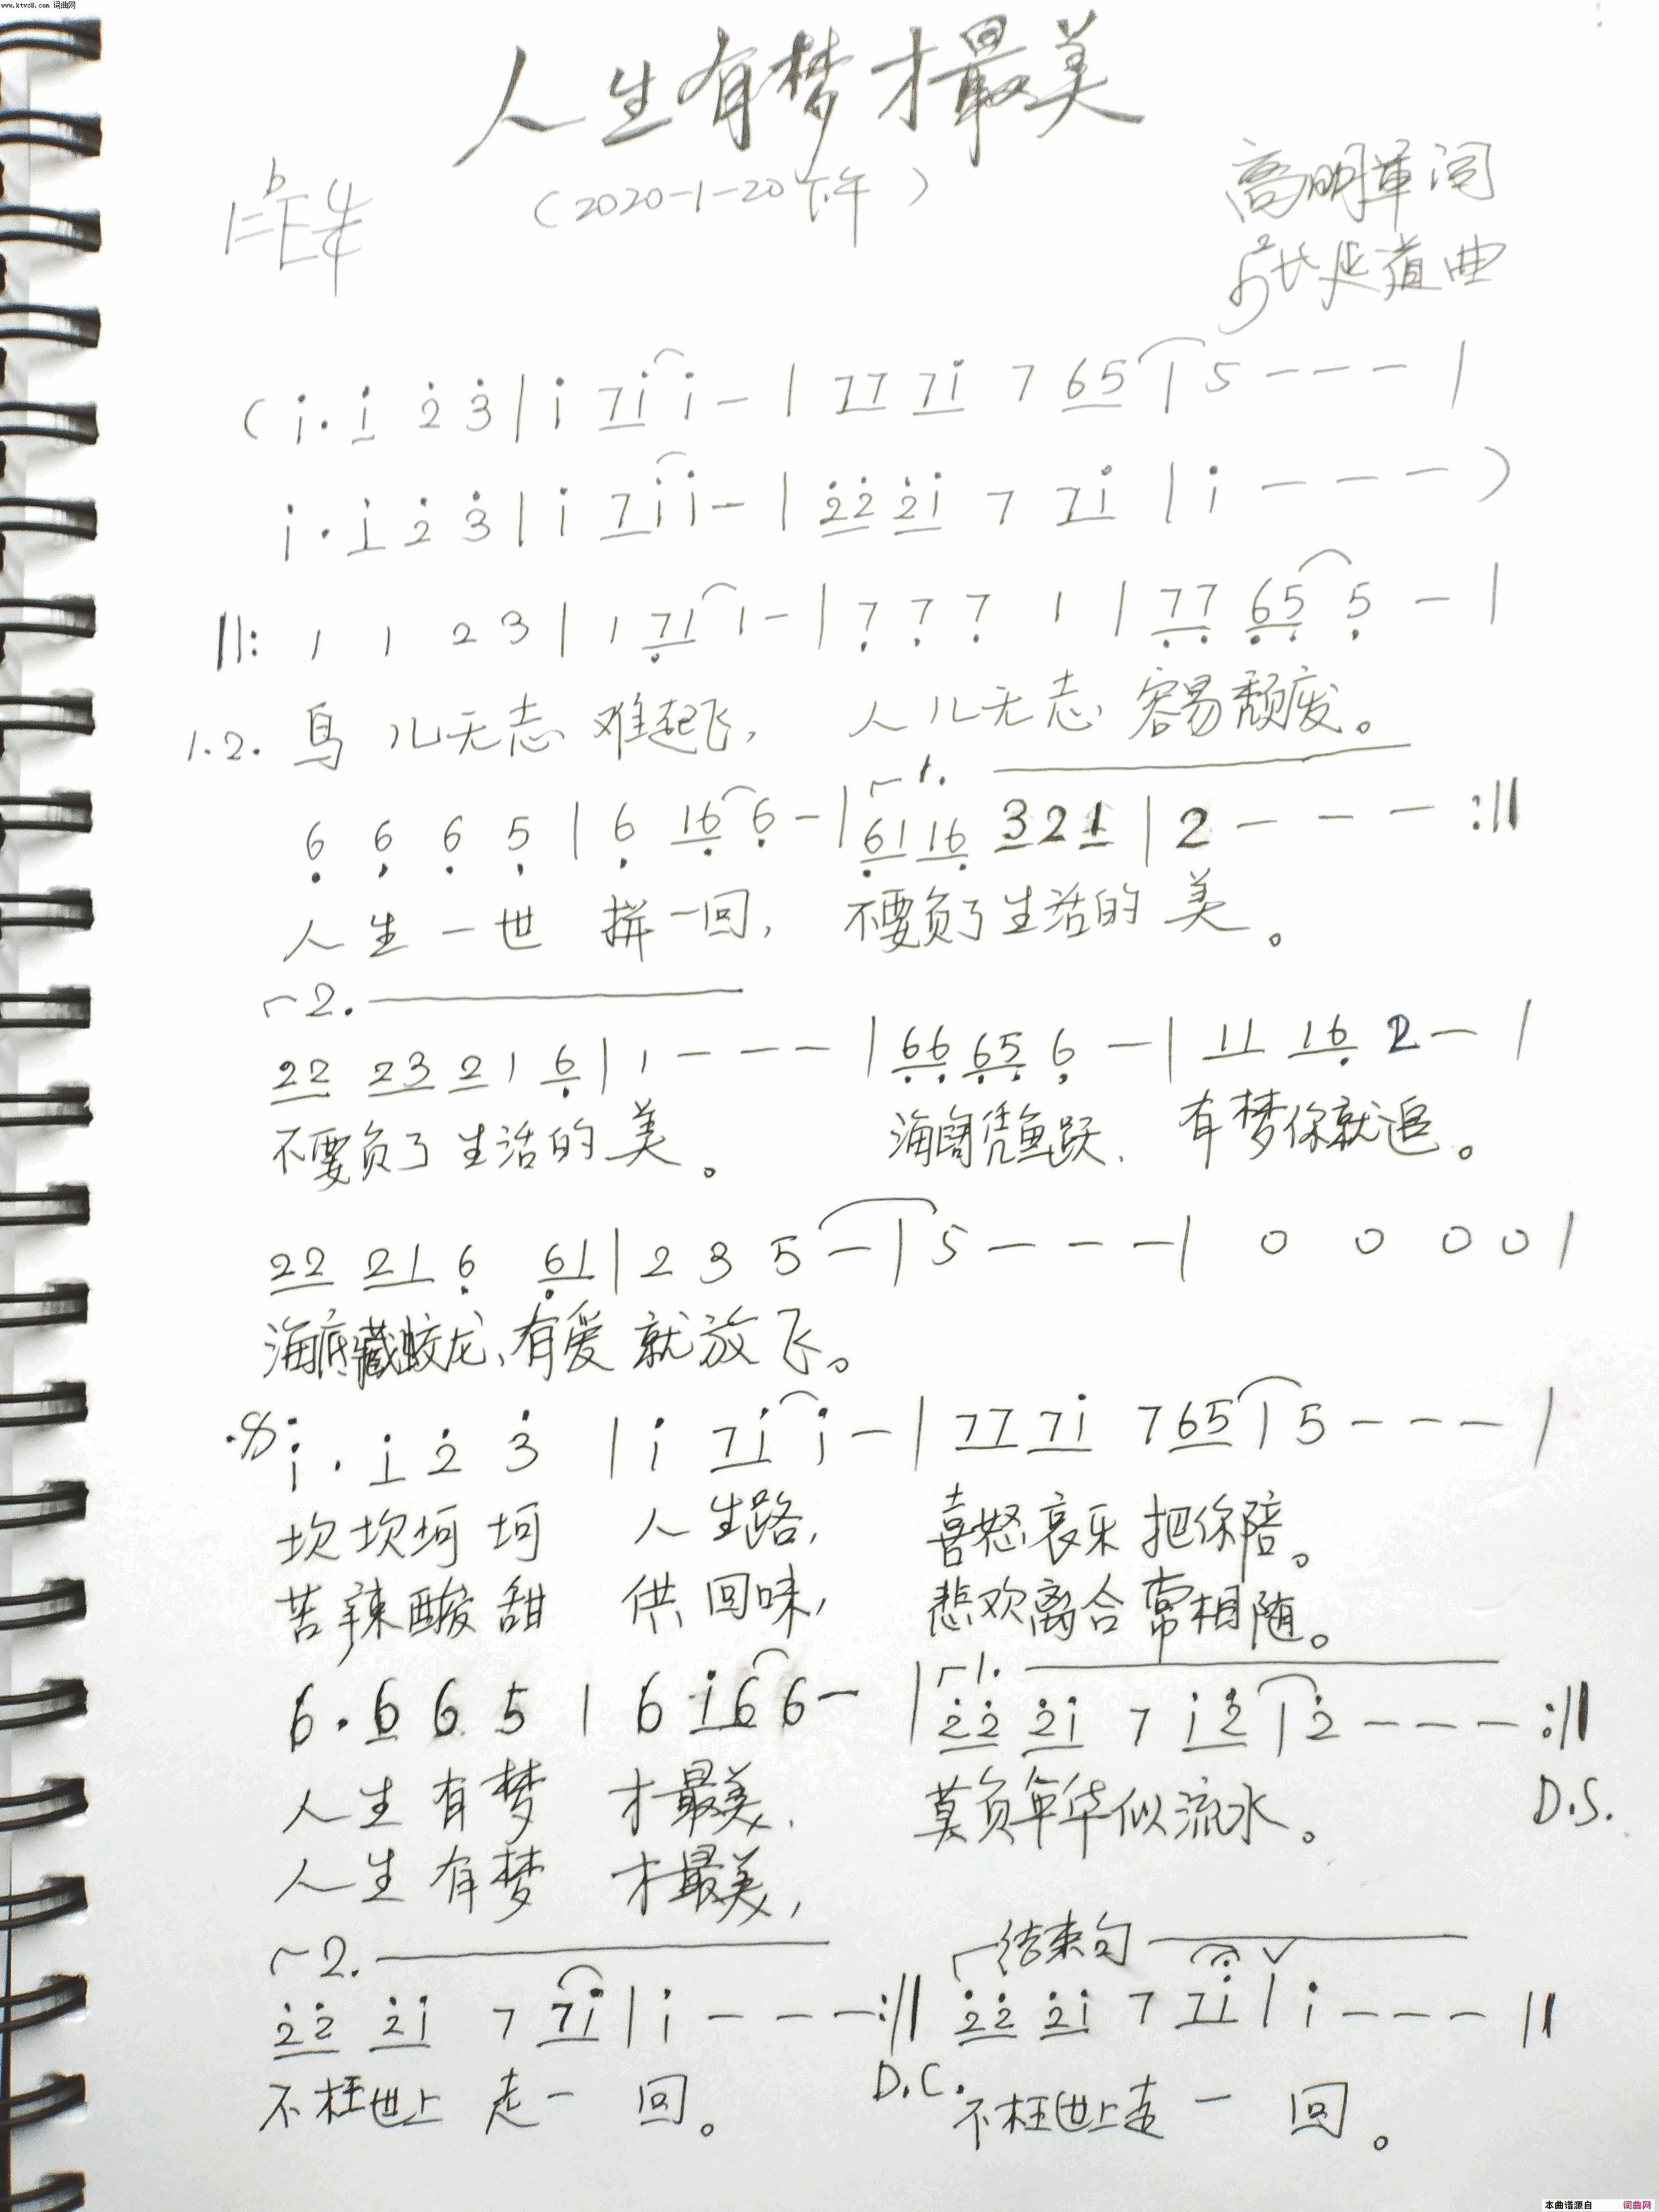 www.ktvc8.com 词曲网
人生有梦才最美
(2020-1-20下午)
1=♭E 4/4
高明革词
代延道曲
(i̇. i̇ 2̇ 3̇ | i̇ 7i̇ i̇ - | 77 7i̇ 7 65 | 5 - - - |
i̇. i̇ 2̇ 3̇ | i̇ 7i̇ i̇ - | 2̇2̇ 2̇i̇ 7 7i̇ | i̇ - - - )
||: 1 1 2 3 | 1 7̣1 1 - | 7̣ 7̣ 7̣ 1 | 7̣7̣ 6̣5̣ 5̣ - |
1.2. 鸟儿无志难起飞, 人儿无志容易颓废。
6̣ 6̣ 6̣ 5̣ | 6̣ 16̣ 6̣ - | 1. 6̣1 16̣ 3 2 1 | 2 - - - :||
人生一世拼一回, 不要负了生活的美。
2.
22 23 2 1 6̣ | 1 - - - | 6̣6̣ 6̣5̣ 6̣ - | 11 16̣ 2 - |
不要负了生活的美。 海阔凭鱼跃、 有梦你就追。
22 21 6̣ 6̣1 | 2 3 5 - | 5 - - - | 0 0 0 0 |
海底藏蛟龙、有爱就放飞。
i̇. i̇ 2̇ 3̇ | i̇ 7i̇ i̇ - | 77 7i̇ 7 65 | 5 - - - |
坎坎坷坷 人生路, 喜怒哀乐把你陪。
苦辣酸甜 供回味, 悲欢离合常相随。
6. 6 6 5 | 6 i̇6 6 - | 1. 2̇2̇ 2̇i̇ 7 i̇2̇ | 2̇ - - - :||
人生有梦 才最美、 莫负年华似流水。 D.S.
人生有梦 才最美,
2. 结束句
2̇2̇ 2̇i̇ 7 7i̇ | i̇ - - - :|| 2̇2̇ 2̇i̇ 7 7i̇ | i̇ - - - ||
不枉世上走一回。 D.C. 不枉世上走一回。
本曲谱源自 词曲网